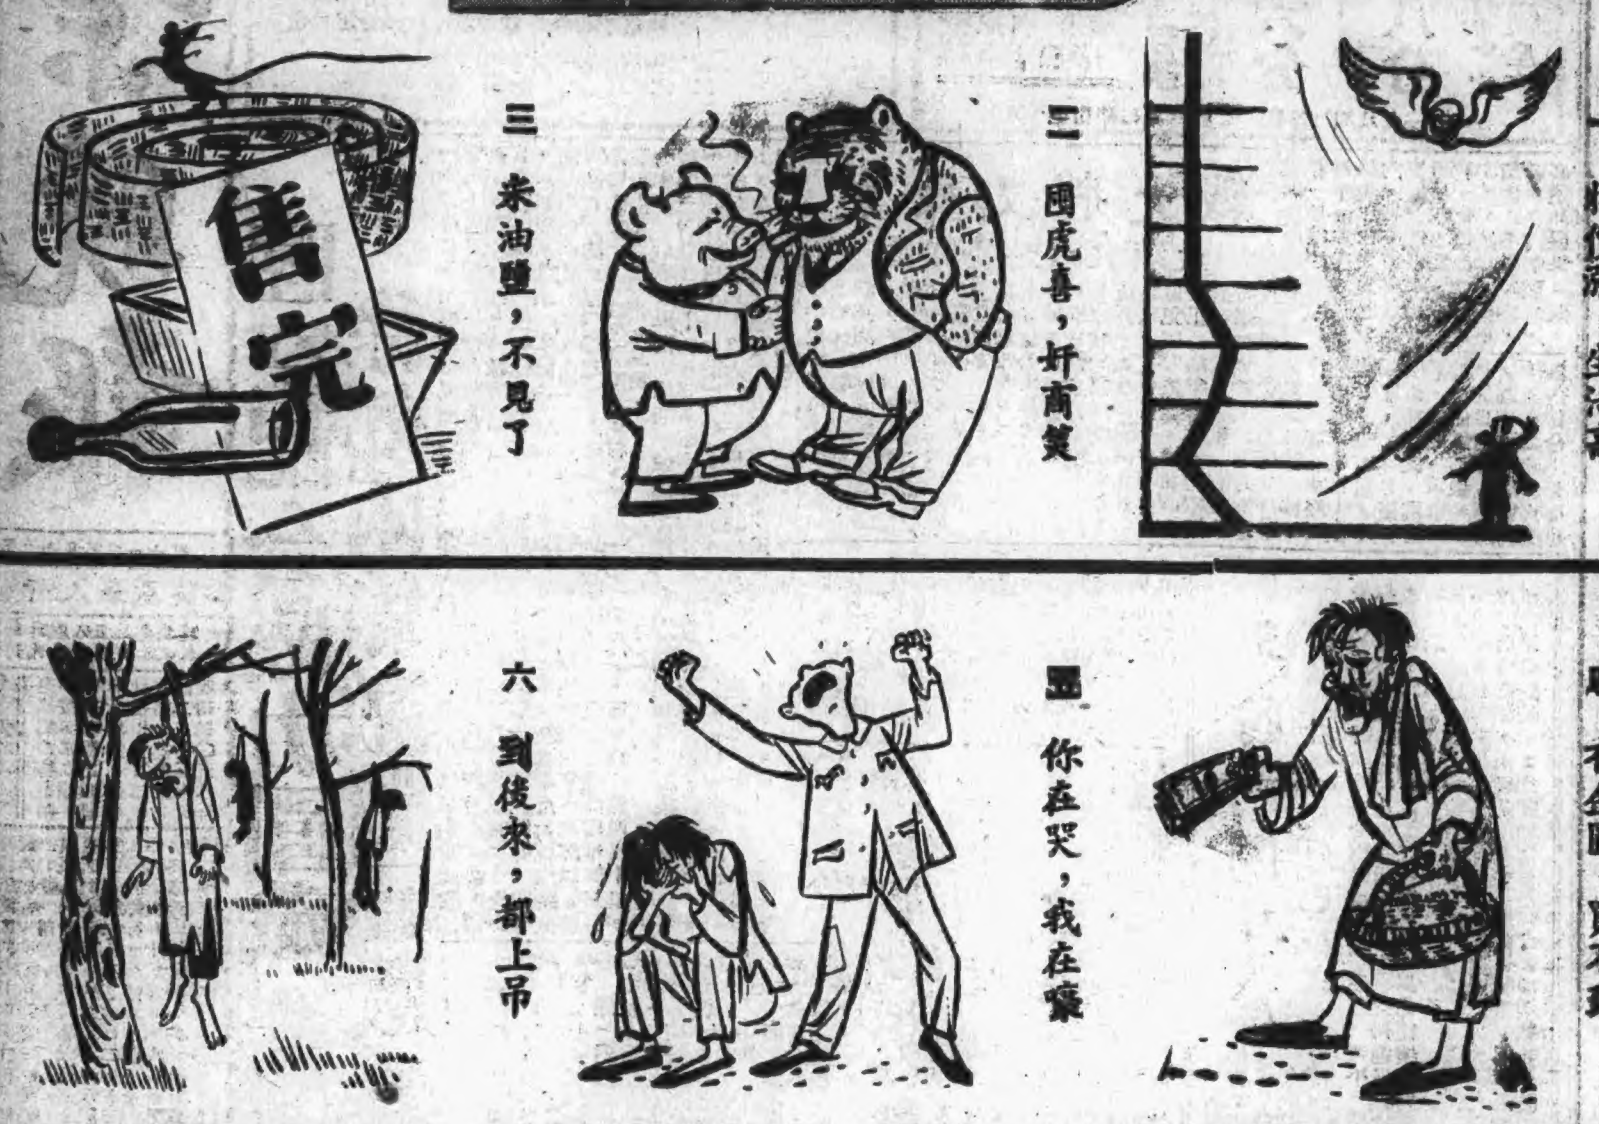 二 囤虎喜，奸商笑
三 米油鹽，不見了
售完
五 你在哭，我在嚎
六 到後來，都上吊